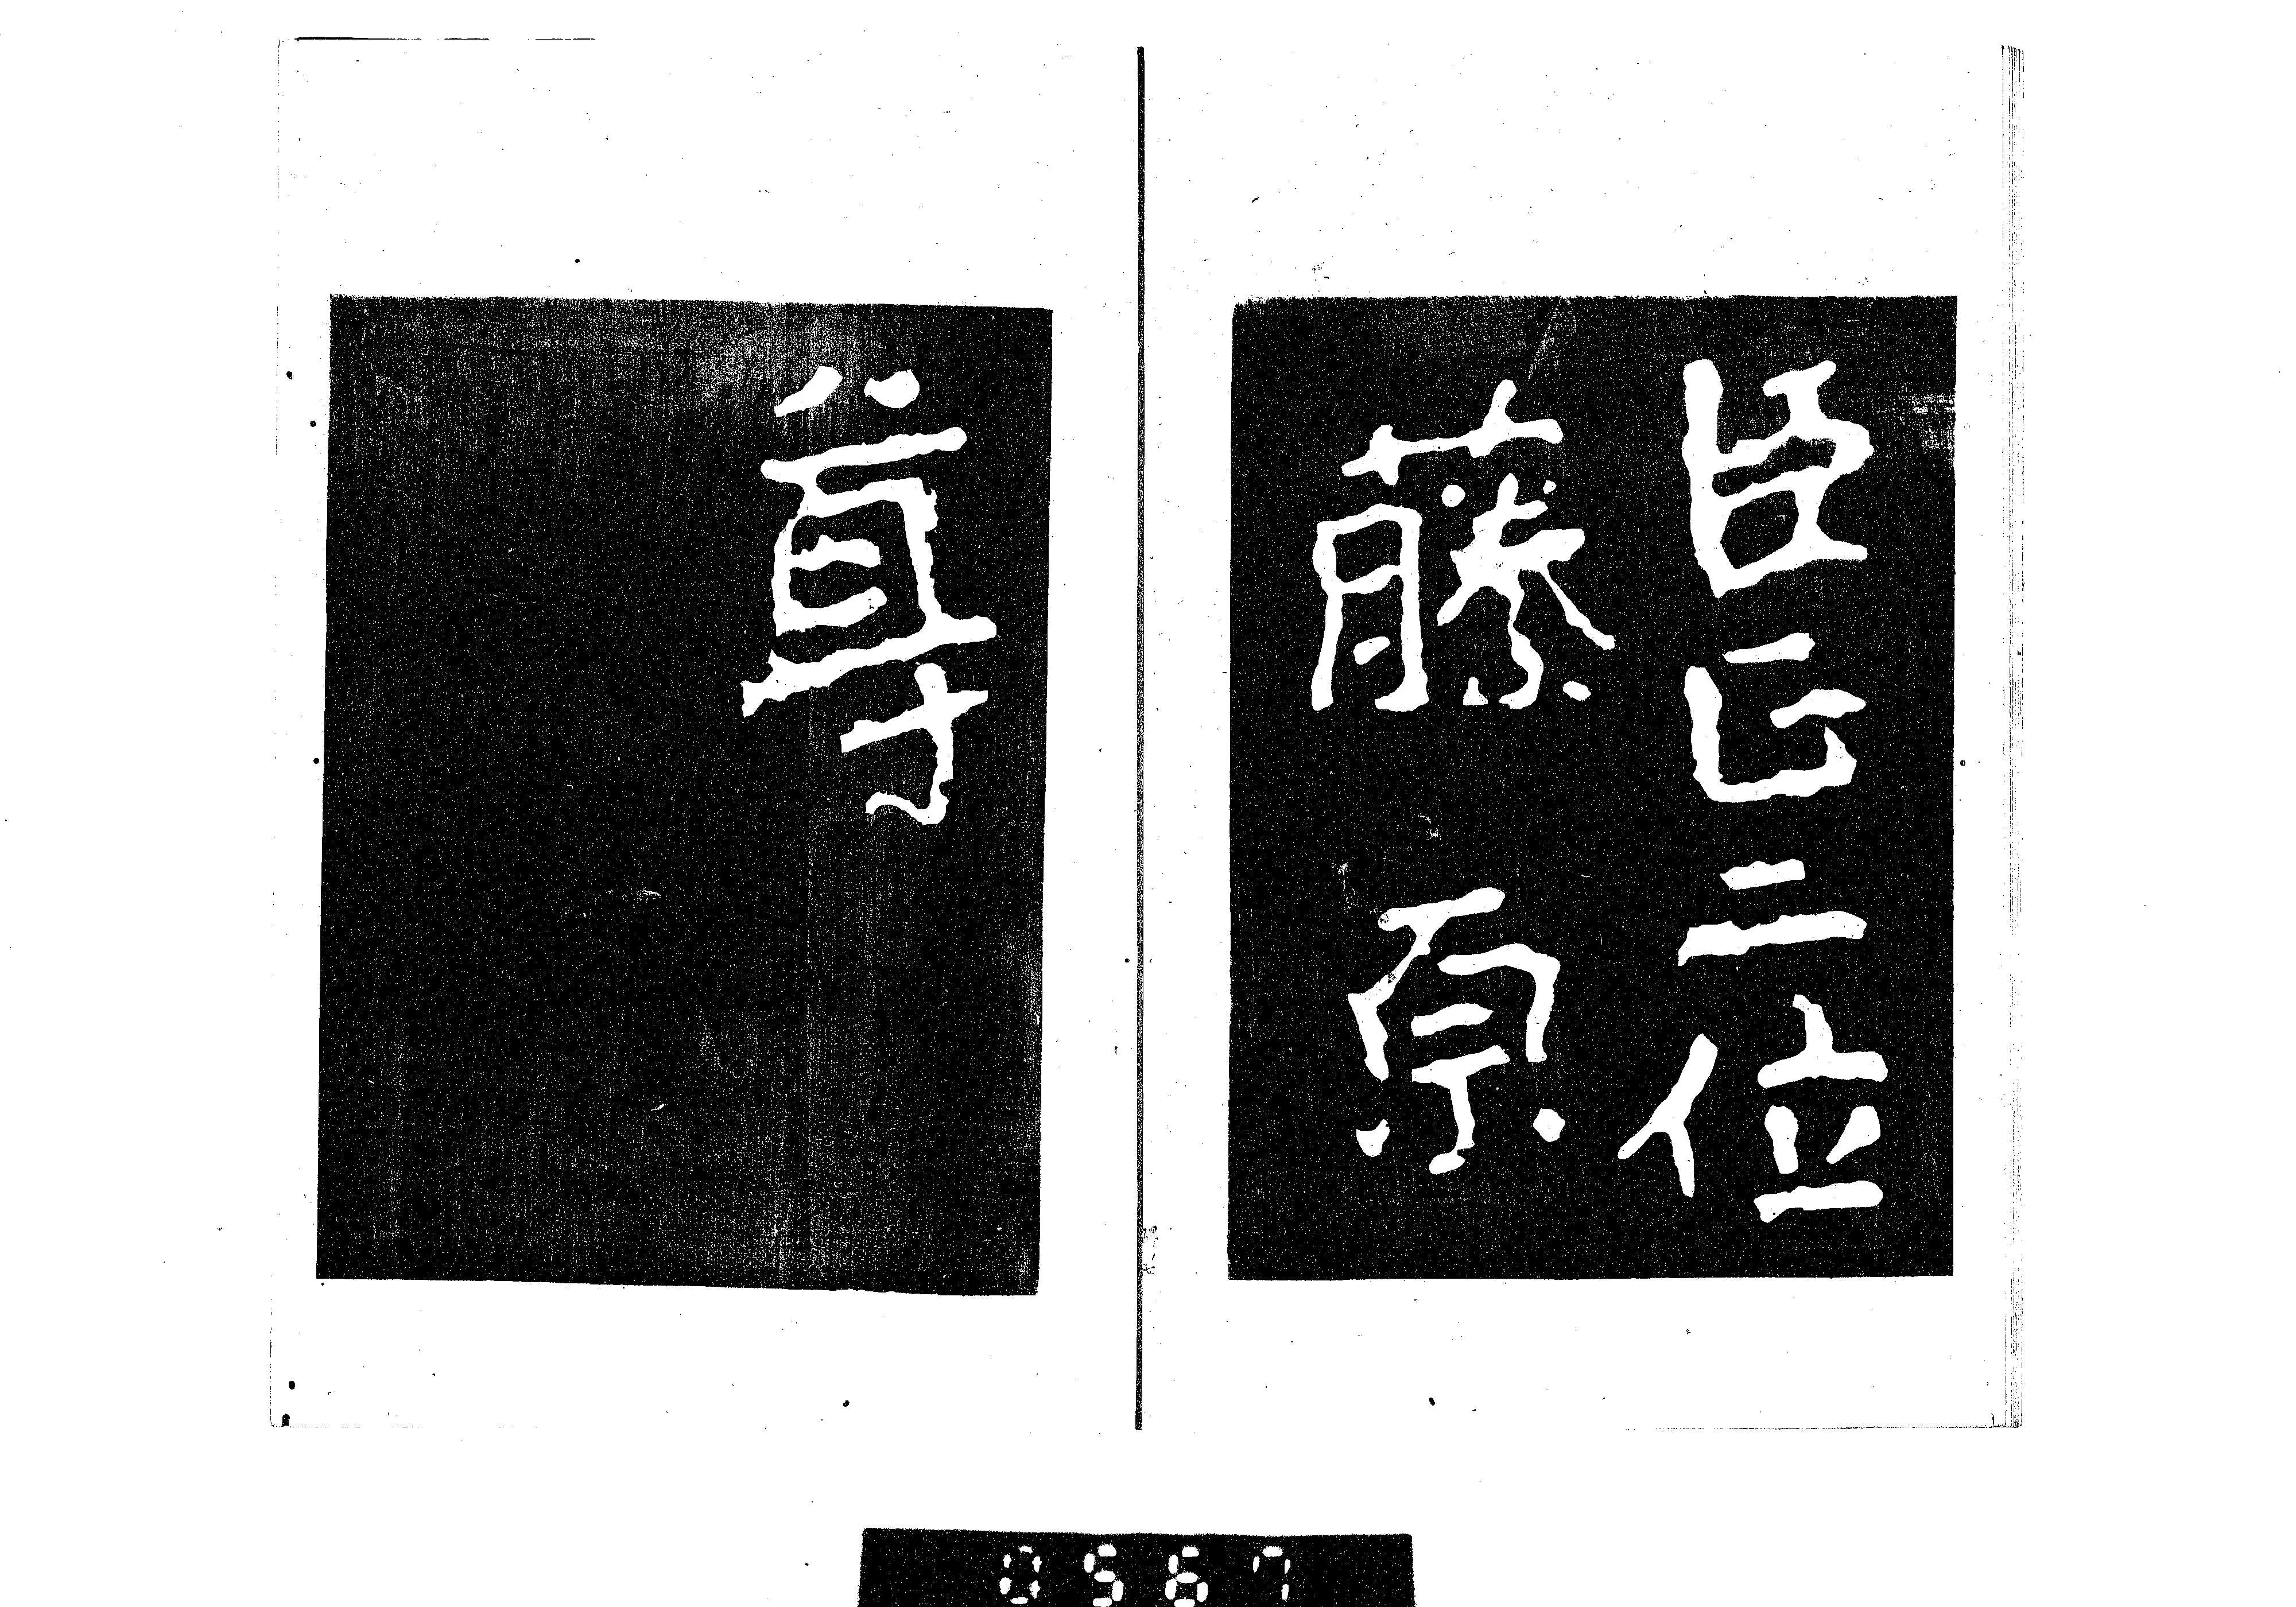 臣正二位
藤原
尊
0567